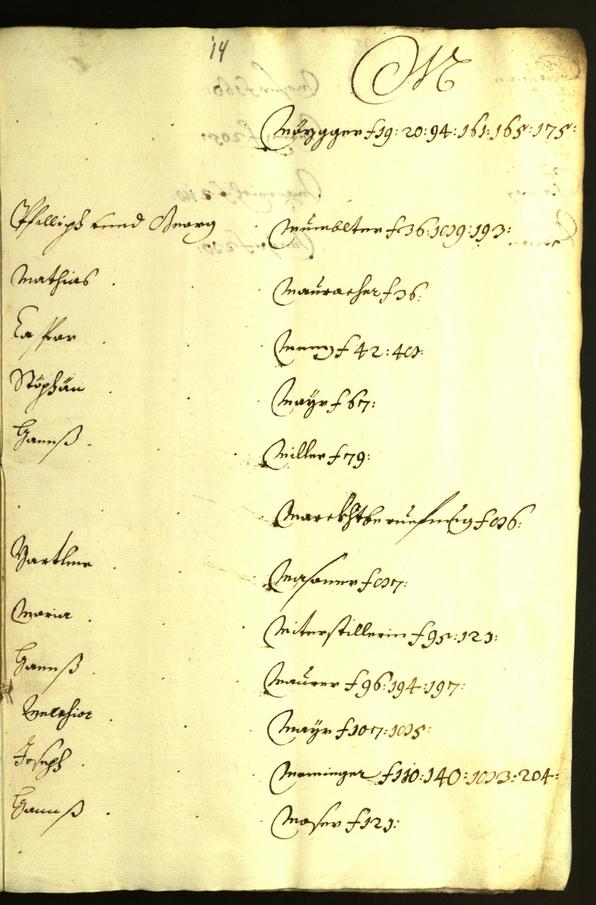 14
M
Mözgger f 19: 20: 94: 161: 165: 175:
Philliph unnd Georg Mumelter f 36: 189: 193:
Mathias Mauracher f 36:
Caspar Menz f 42: 48:
Stöphän Mayr f 67:
Hannß Miller f 79:
Marckhtberueffung f 86:
Bartlme Masoner f 87:
Maria Miterstillerin f 95: 121:
Hannß Maurer f 96: 194: 197:
Melchior Mayr f 107: 185:
Joseph Menninger f 110: 140: 183: 204:
Hannß Moser f 121: